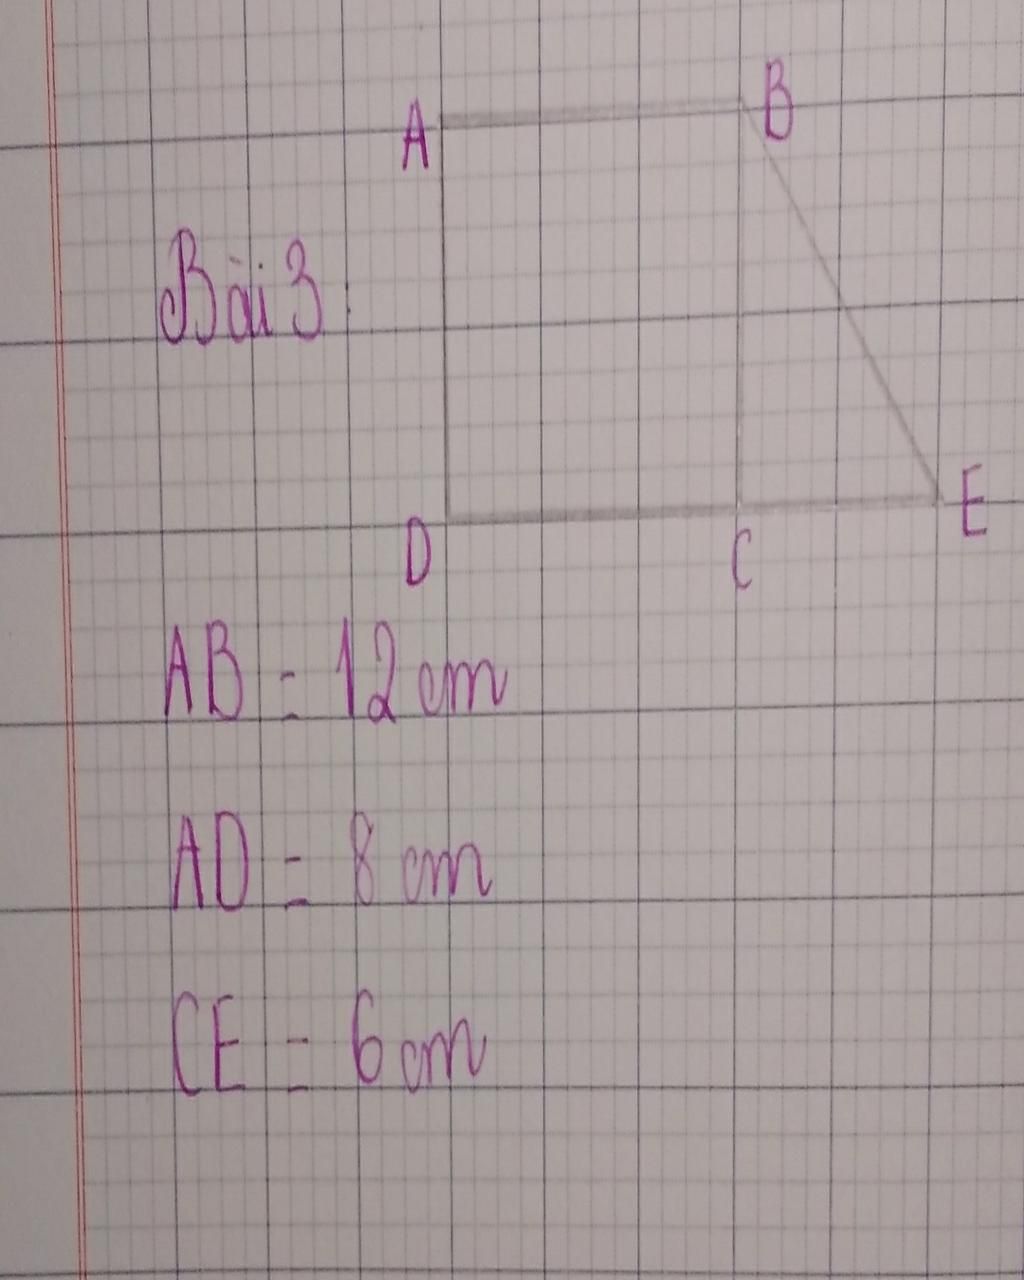 A B
Bài 3:
D C E
AB = 12 cm
AD = 8 cm
CE = 6 cm